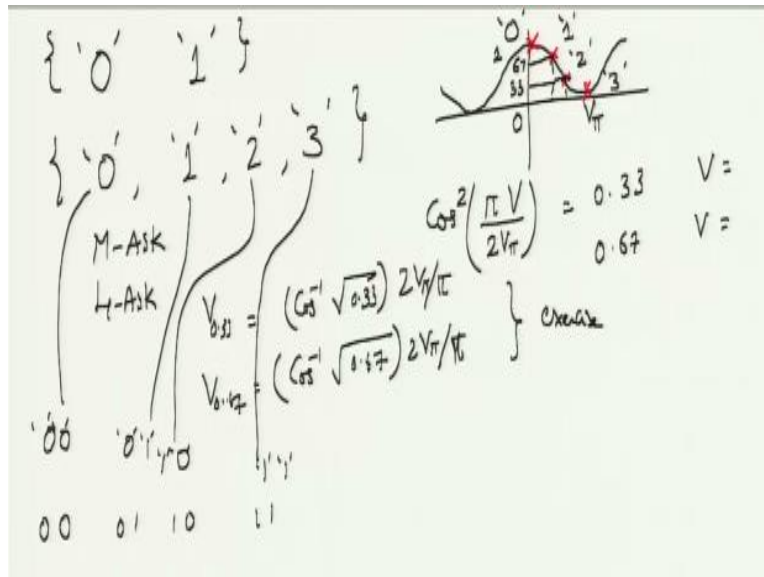 { '0' '1' }
'0' '1'
1 67 '2'
33 '3'
0 Vπ
{ '0', '1', '2', '3' }
Cos²(πV/2Vπ) = 0.33 V =
0.67 V =
M-ASK
4-ASK
V0.33 = (Cos⁻¹ √0.33) 2Vπ/π
V0.67 = (Cos⁻¹ √0.67) 2Vπ/π } exercise
'0'0' '0'1' '1'0' '1'1'
00 01 10 11